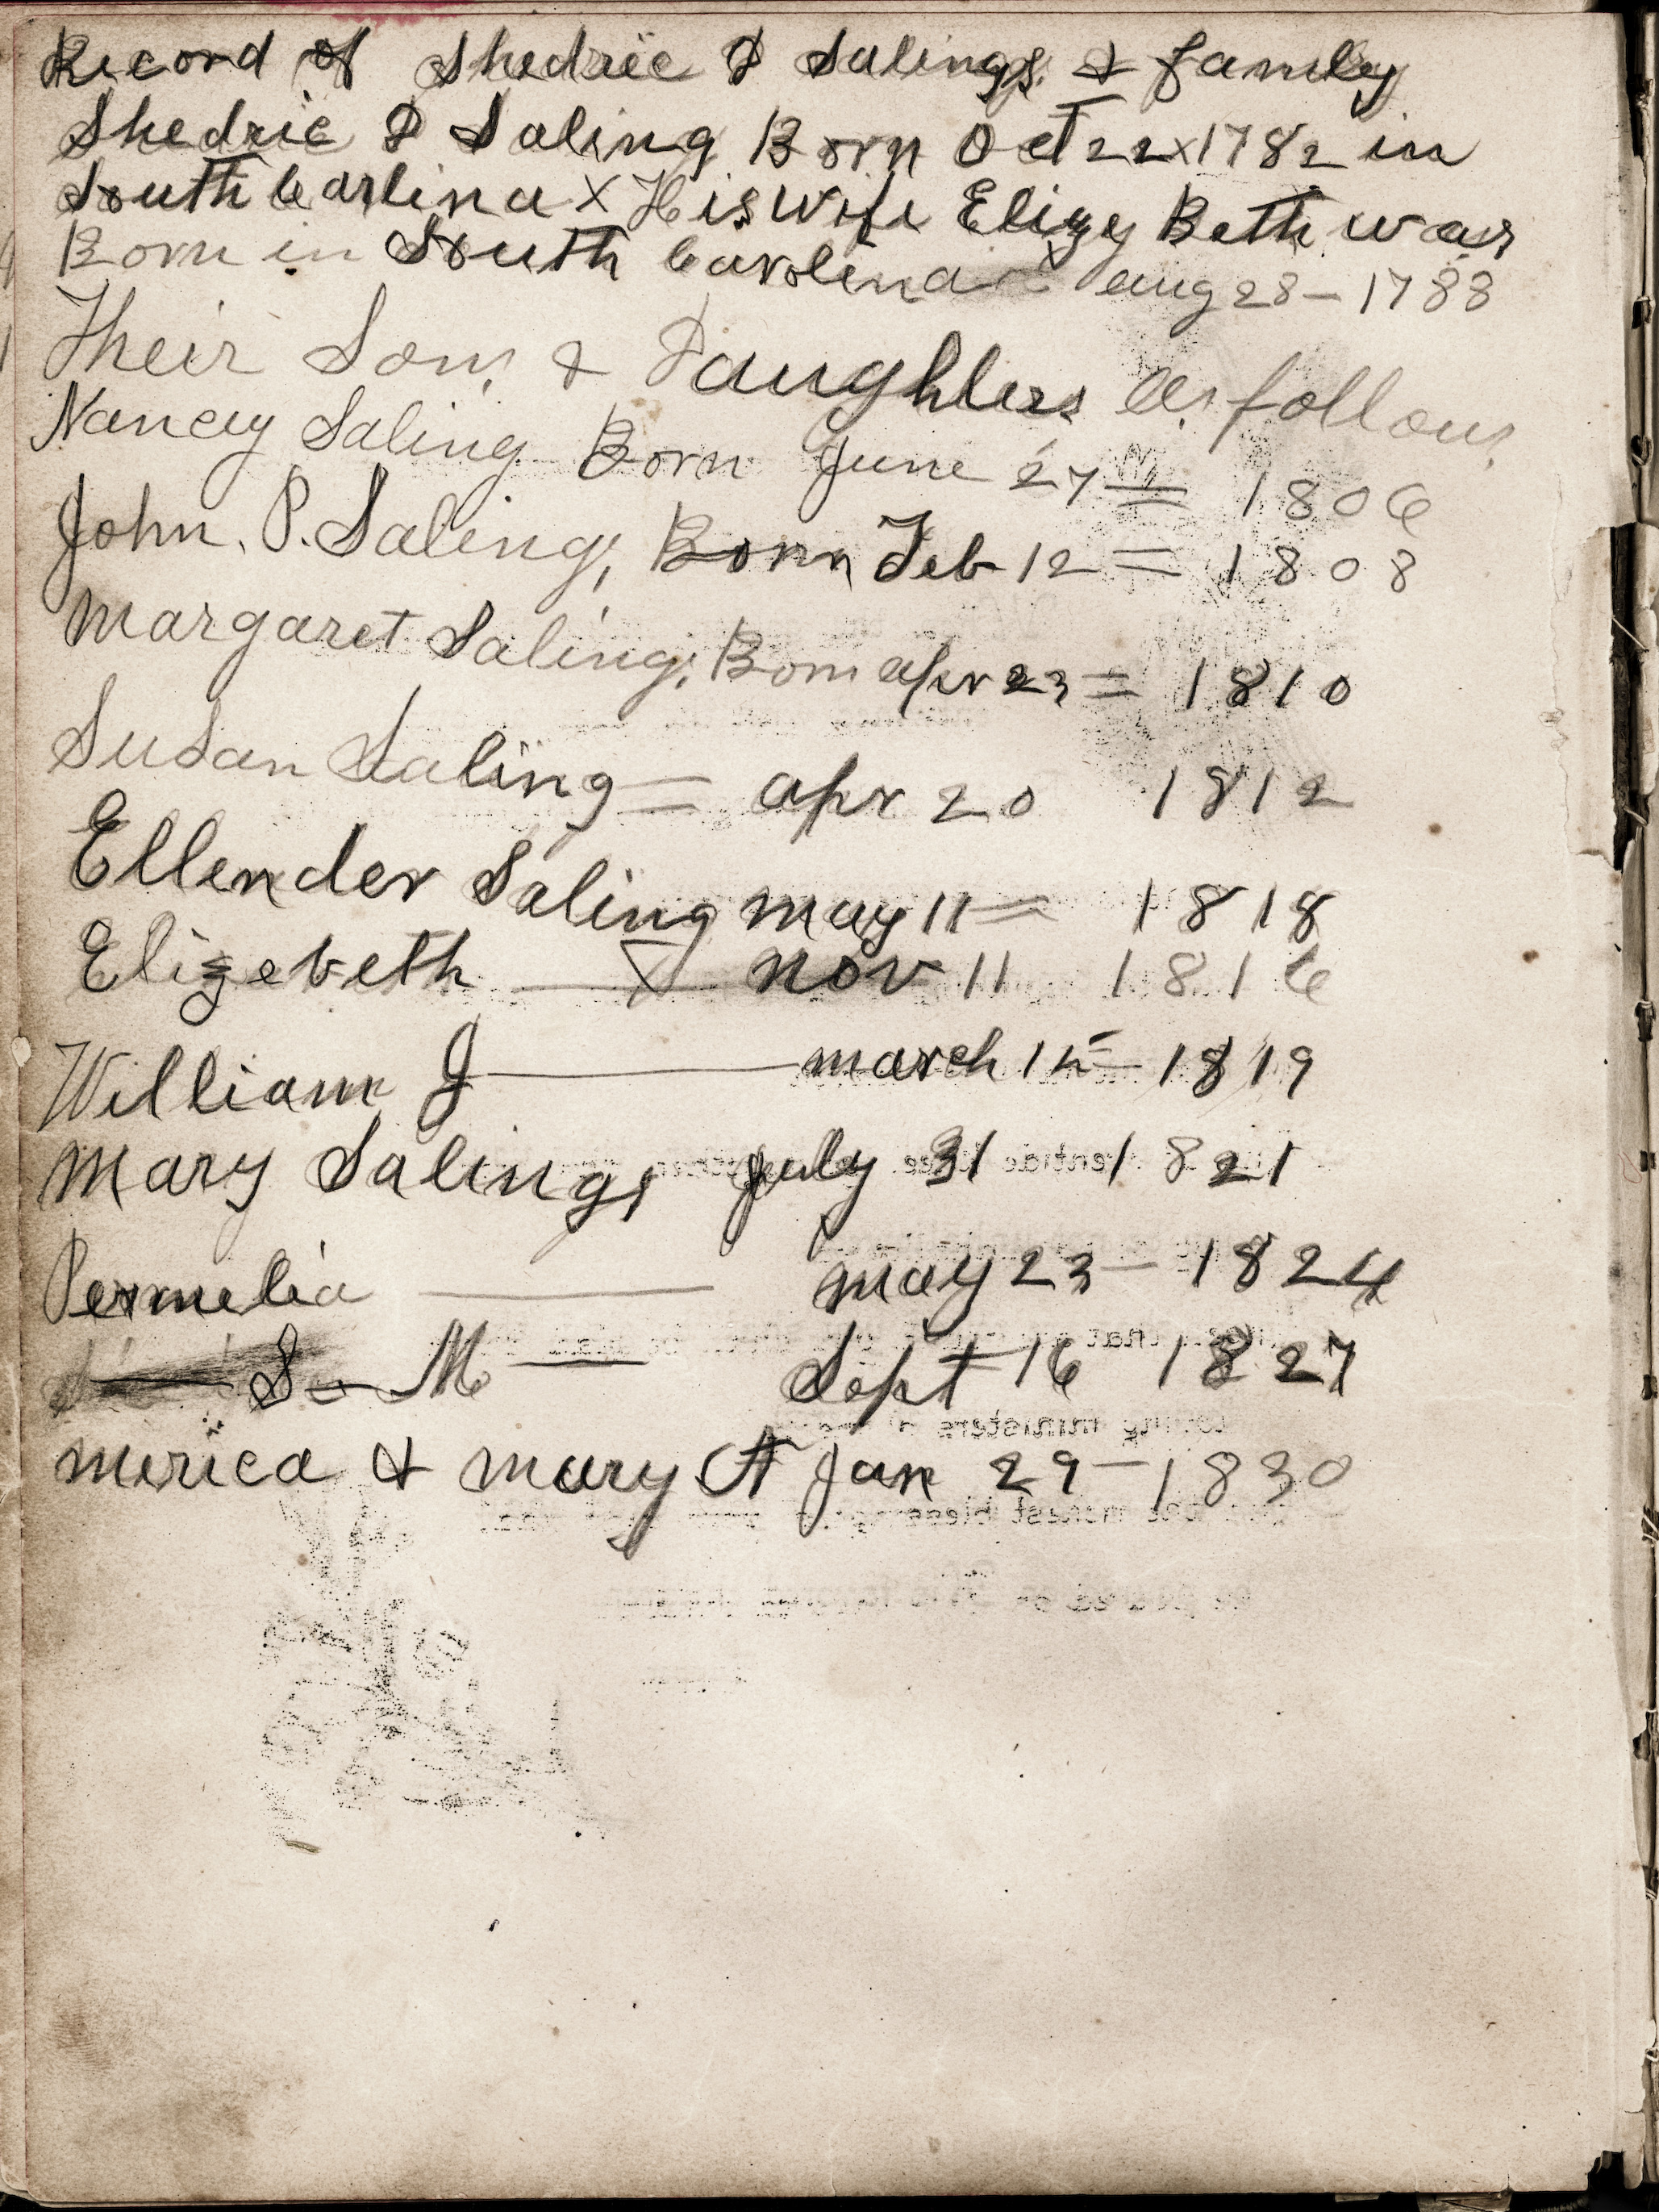 Record of Shedric D Salings & family
Shedric D Saling Born Oct 22 x 1782 in
South Carlina x His Wife Elizy Beth was
Born in South Carolina aug 28 - 1788
Their Sons & Daughters as follows
Nancy Saling Born June 27 = 1806
John. P. Saling, Born Feb 12 = 1808
Margaret Saling, Born apr 23 = 1810
Susan Saling = apr 20 1812
Ellender Saling may 11 = 1818
Elizebeth — nov 11 1816
William J — march 15 - 1819
Mary Saling, July 31 1821
Permelia — may 23 - 1824
S — M — Sept 16 1827
merica & mary A Jan 29 - 1830